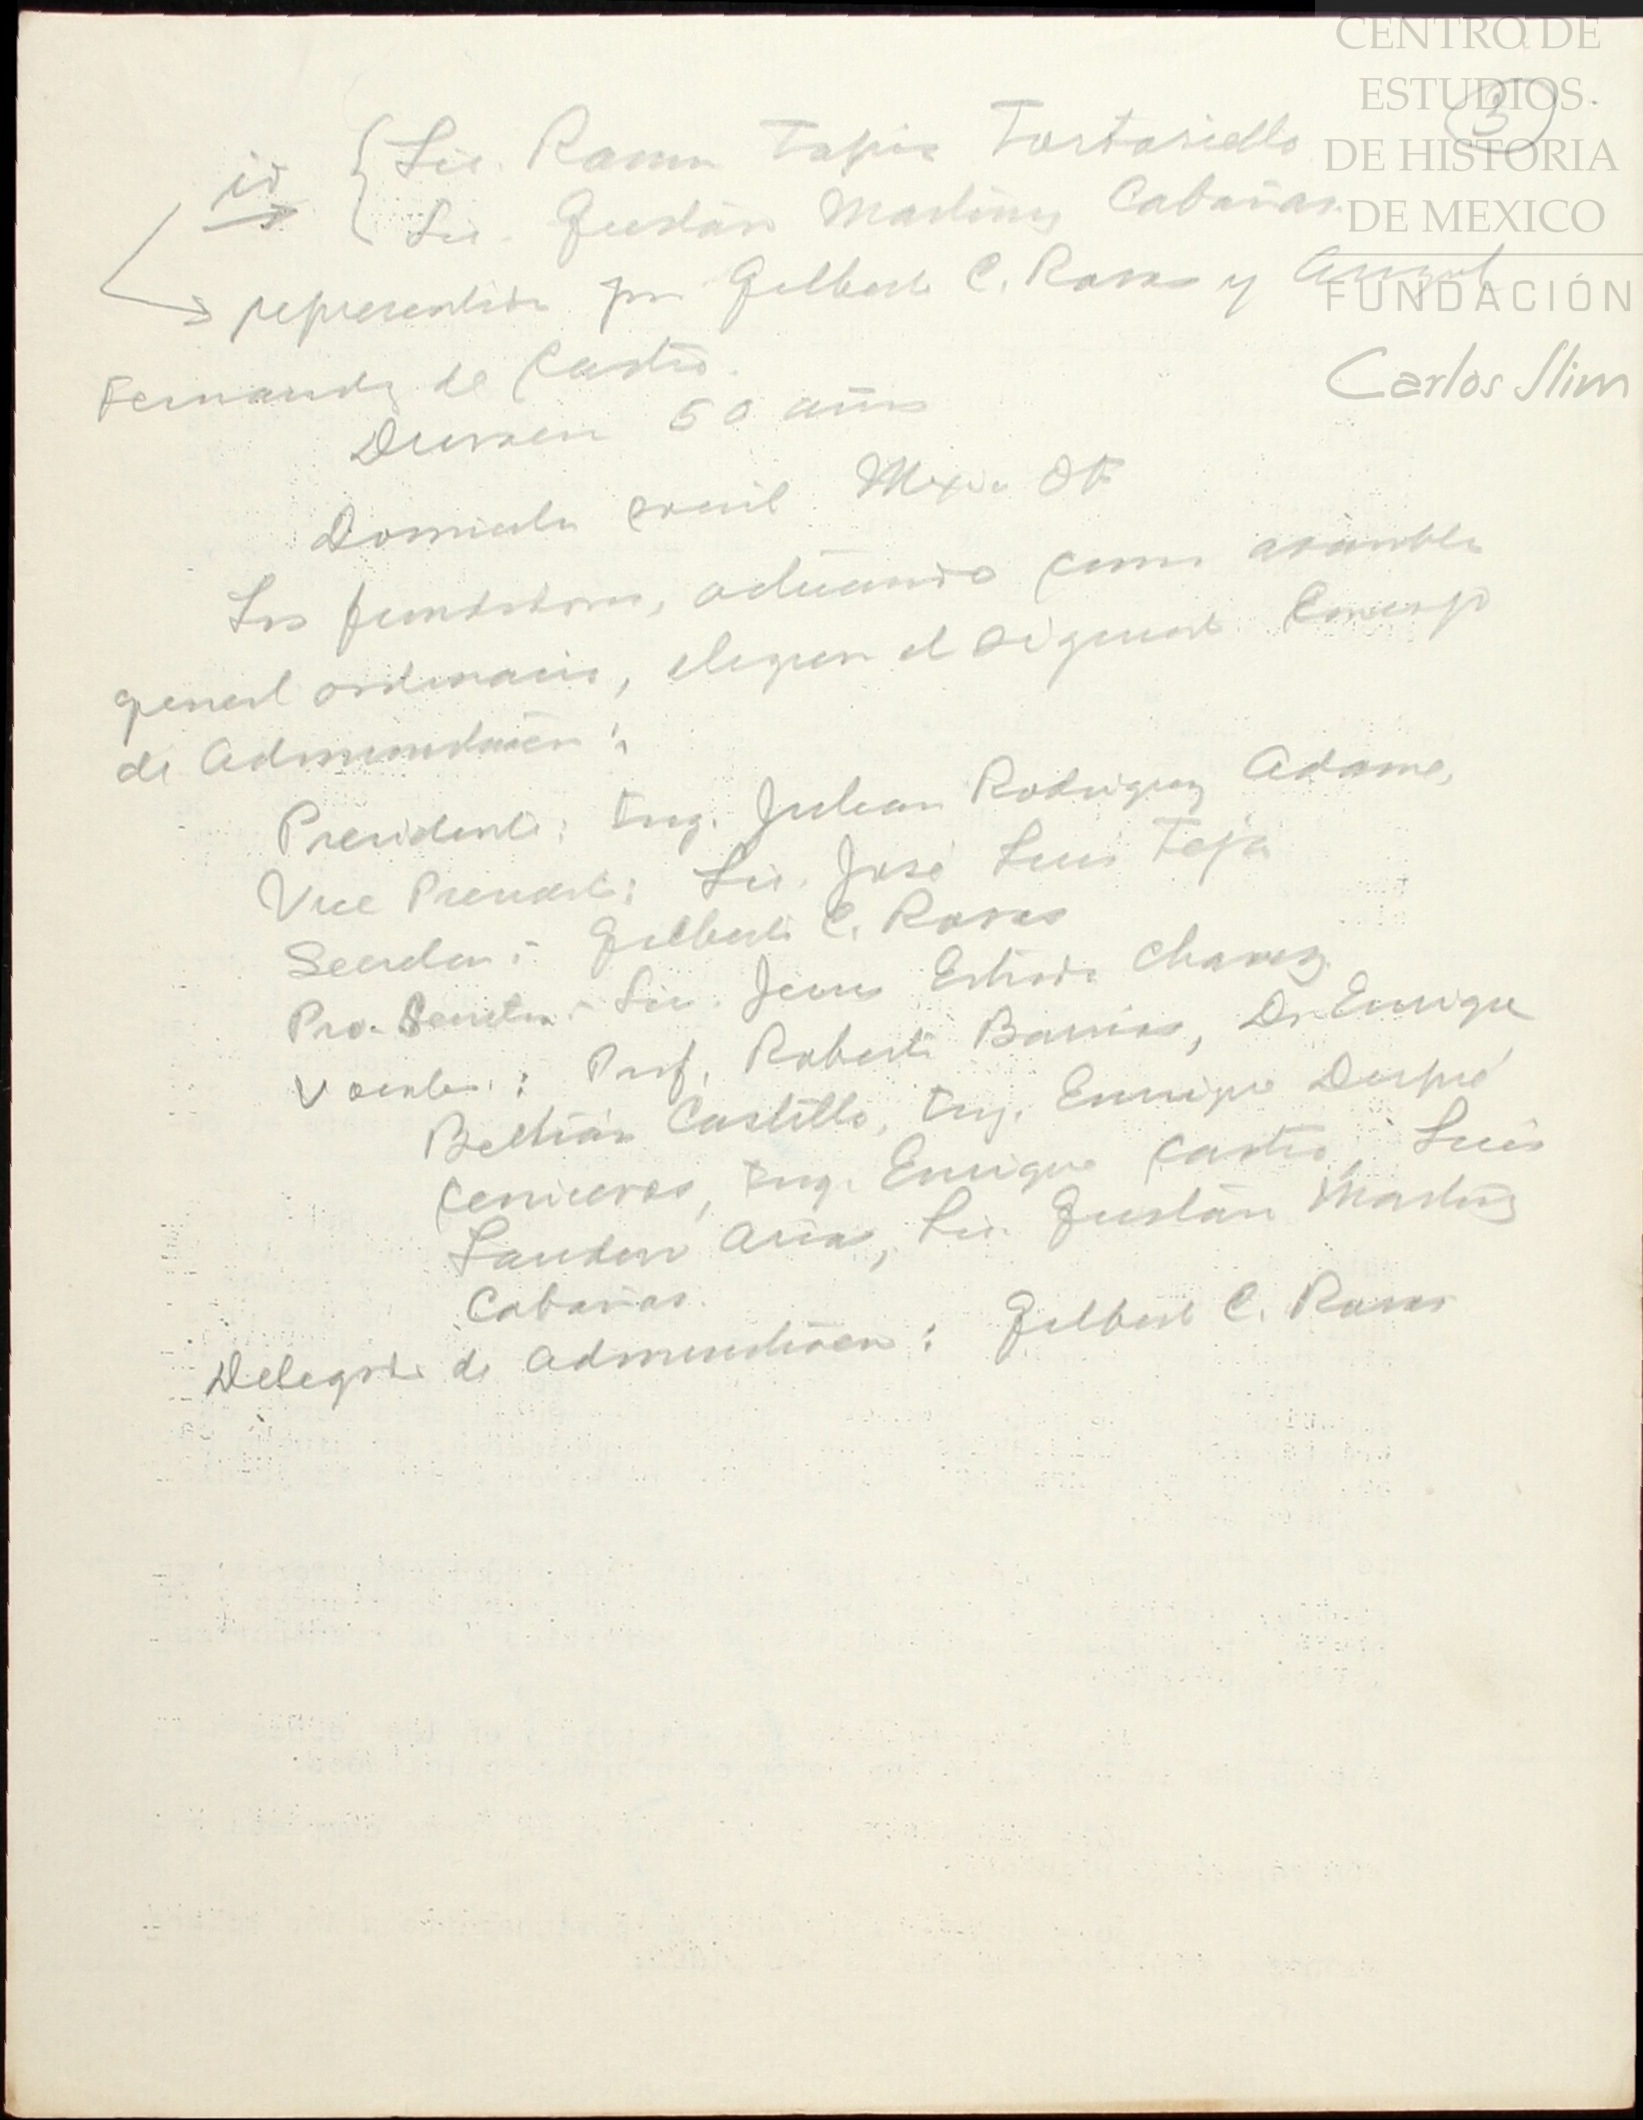 CENTRO DE
ESTUDIOS
DE HISTORIA
DE MEXICO
FUNDACIÓN
Carlos Slim
3
id { Lic. Ramon Tapia Tortoriello
Lic. Gustavo Martinez Cabañas
representados por Gilberto C. Rosas y Angel
Fernandez de Castro.
Duracion 50 años
Domicilio social Mexico DF
Los fundadores, actuando como asamblea
general ordinaria, eligen el siguiente Consejo
de Administración:
Presidente: Ing. Julian Rodriguez Adame,
Vice Presidente: Lic. José Luis Teja
Secretario: Gilberto C. Rosas
Pro-Secretario: Lic. Jesus Estrada Chavez
Vocales: Prof. Roberto Barrios, Dr Enrique
Beltrán Castillo, Ing. Enrique Dupré
Ceniceros, Ing. Enrique Castro, Luis
Landero Arias, Lic. Gustavo Martinez
Cabañas.
Delegado de Administracion: Gilberto C. Rosas